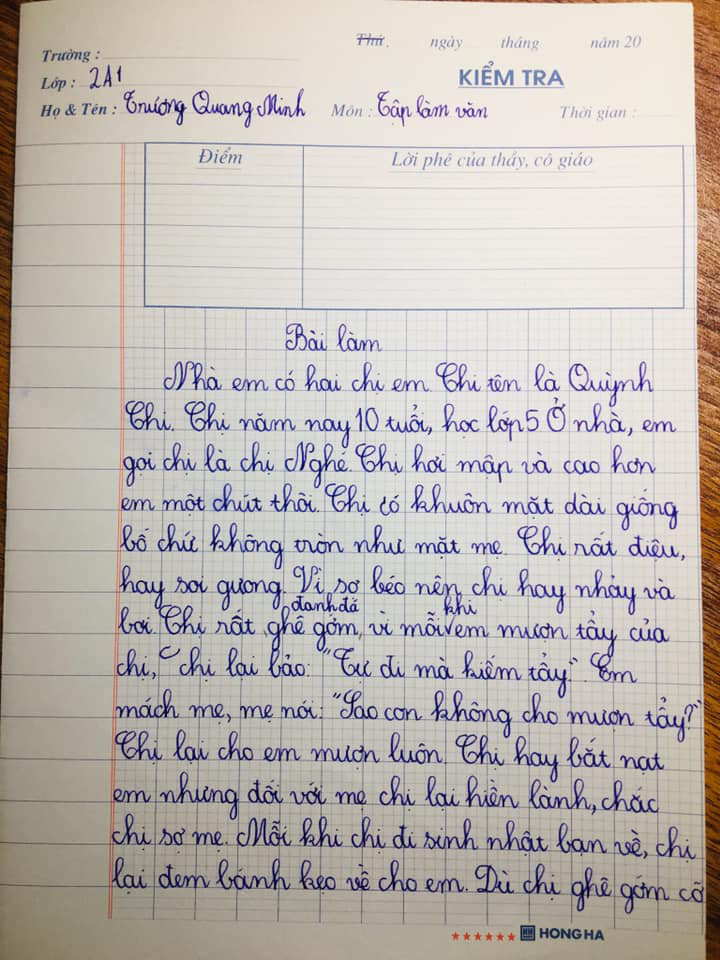 Thứ. ngày tháng năm 20
Trường :
Lớp : 2A1
KIỂM TRA
Họ & Tên : Trương Quang Minh Môn : Tập làm văn Thời gian :
Điểm Lời phê của thầy, cô giáo
Bài làm
Nhà em có hai chị em. Chị tên là Quỳnh
Chi. Chị năm nay 10 tuổi, học lớp 5 Ở nhà, em
gọi chị là chị Nghé. Chị hơi mập và cao hơn
em một chút thôi. Chị có khuôn mặt dài giống
bố chứ không tròn như mặt mẹ. Chị rất điệu,
hay soi gương. Vì sợ béo nên chị hay nhảy và
đanh đá khi
bơi. Chị rất ghê gớm, vì mỗi em mượn tẩy của
chị, chị lại bảo: "Tự đi mà kiếm tẩy". Em
mách mẹ, mẹ nói: "Sao con không cho mượn tẩy?"
Chị lại cho em mượn luôn. Chị hay bắt nạt
em nhưng đối với mẹ chị lại hiền lành, chắc
chị sợ mẹ. Mỗi khi chị đi sinh nhật bạn về, chị
lại đem bánh kẹo về cho em. Dù chị ghê gớm cỡ
HH HONG HA